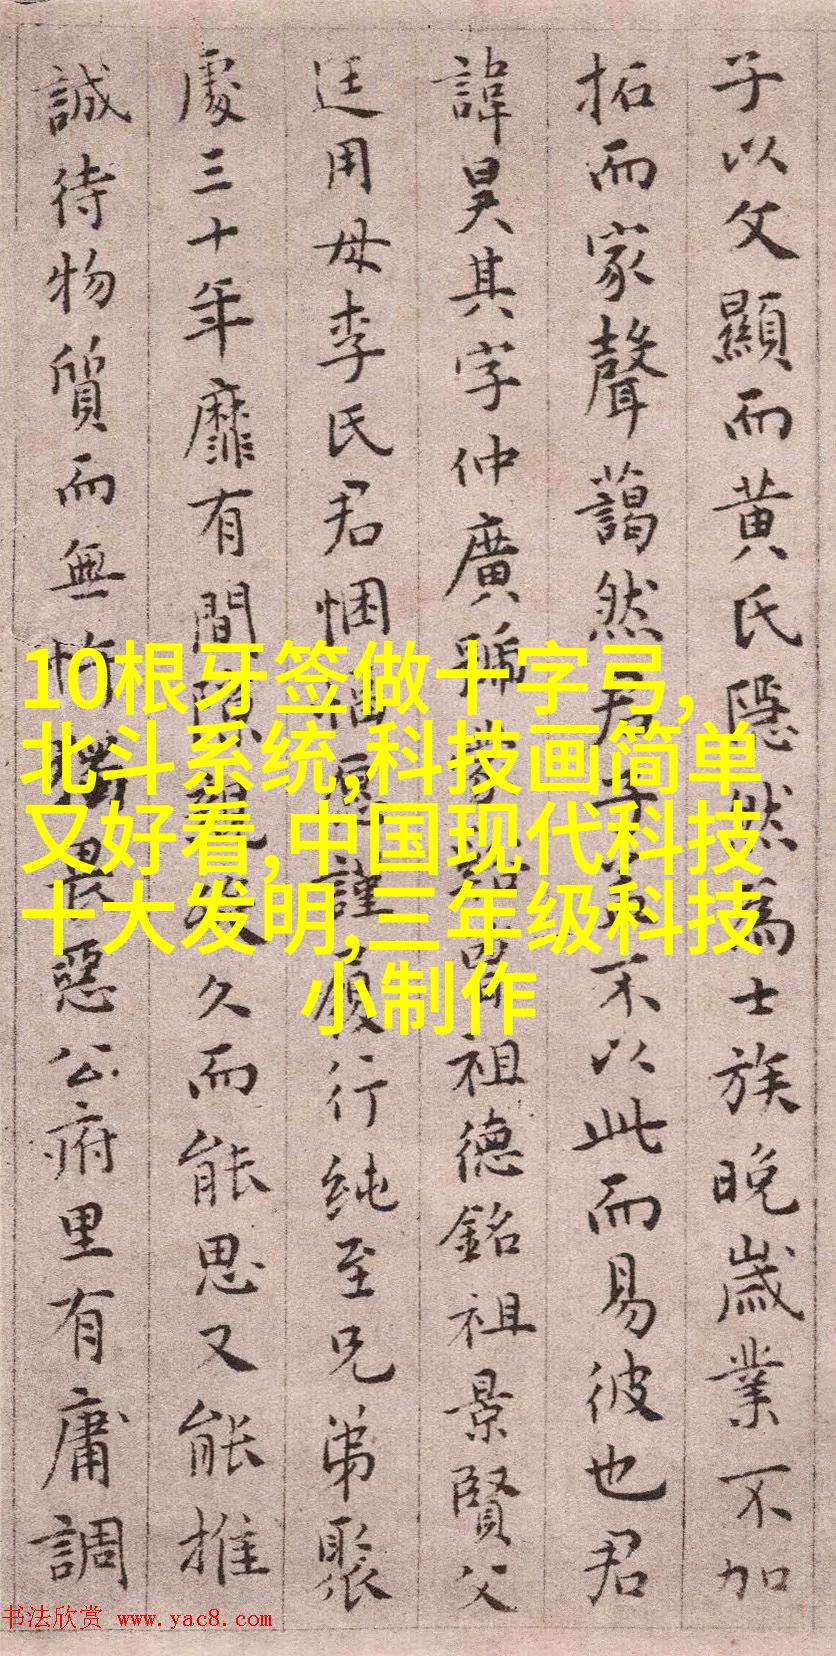 子以父顯而黄氏隱然為士族晚歲業不加
拓而家聲藹然君子不以此而易彼也君
諱昊其字仲廣號祖德銘祖景賢父
廷用母李氏君悃愊謹愿行純至兄弟聚
處三十年靡有間隙久而能思又能推
誠待物質而無畏惡公府里有庸調
10根牙签做十字弓,
北斗系统,科技画简单
又好看,中国现代科技
十大发明,三年级科技
小制作
书法欣赏 www.yac8.com